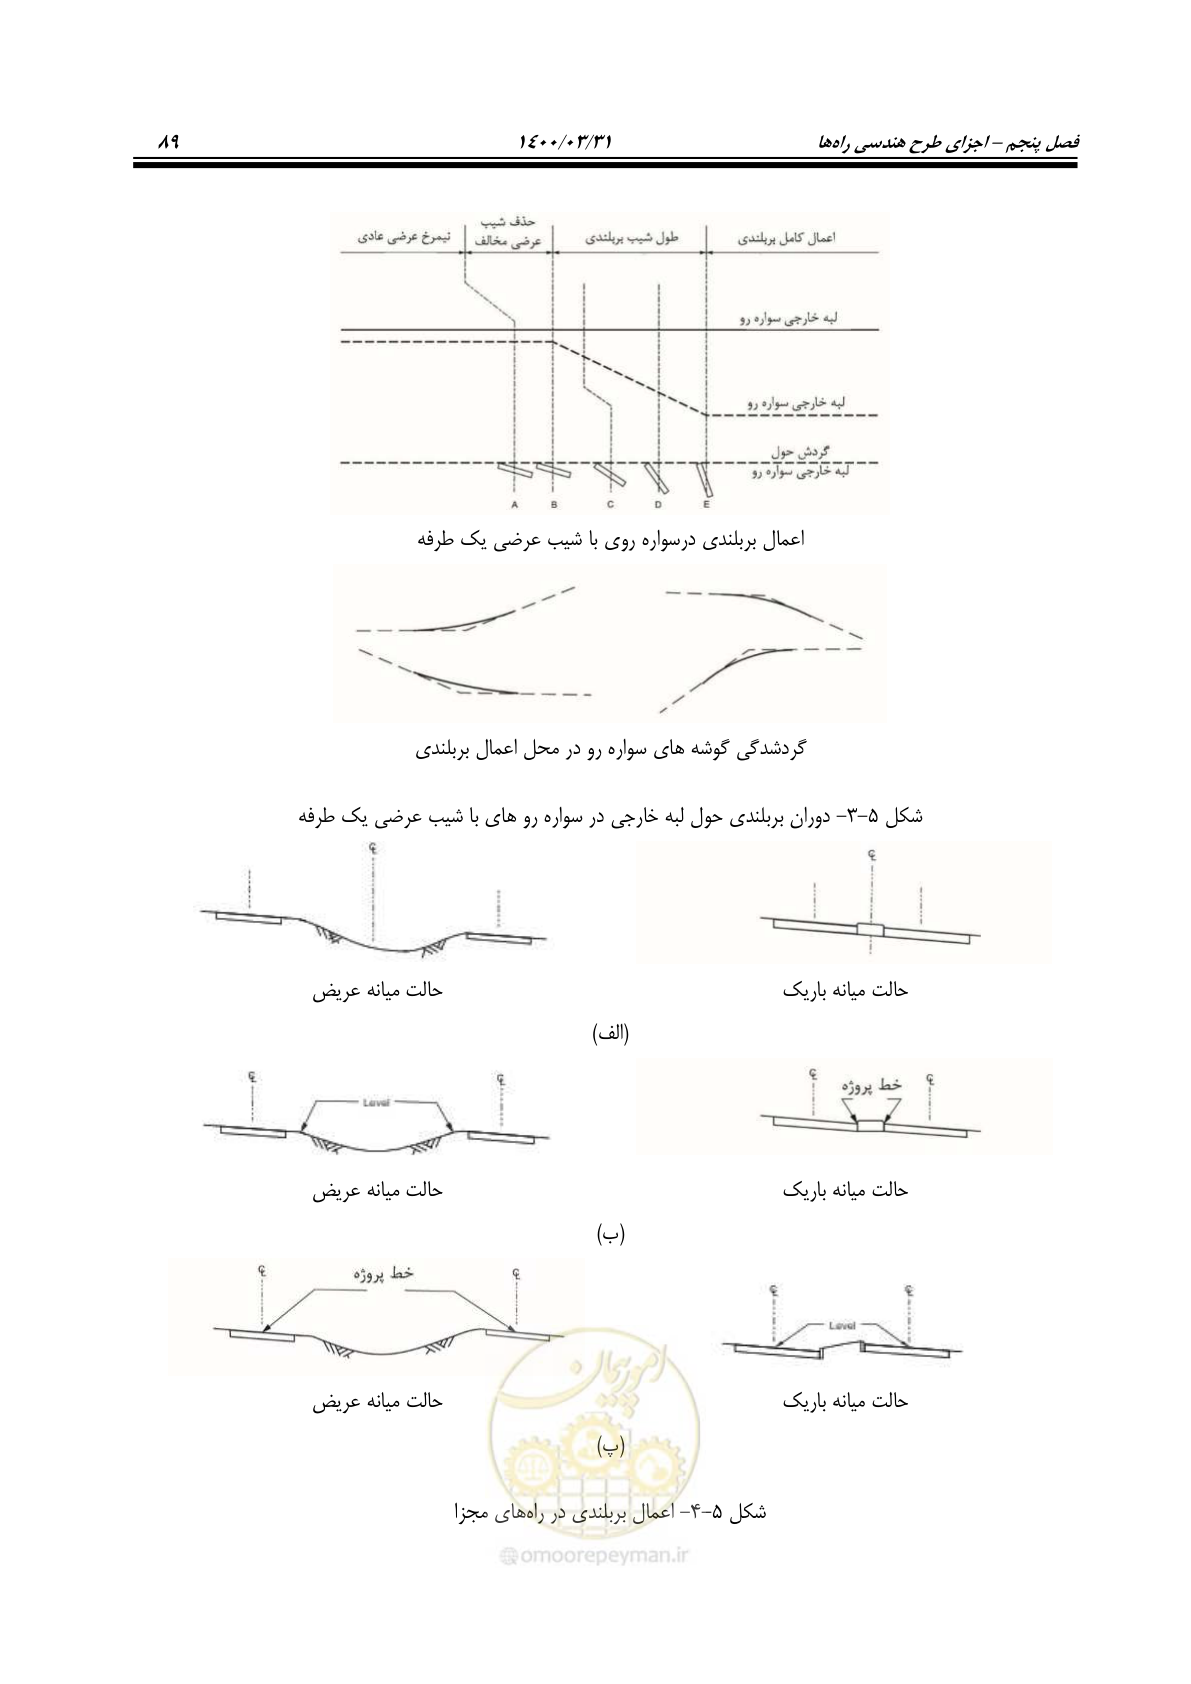 فصل پنجم – اجزای طرح هندسی راه‌ها ۱٤۰۰/۰۳/۳۱ ۸۹
اعمال کامل بربلندی طول شیب بربلندی حذف شیب عرضی مخالف نیمرخ عرضی عادی
لبه خارجی سواره رو
لبه خارجی سواره رو
گردش حول
لبه خارجی سواره رو
A B C D E
اعمال بربلندی درسواره روی با شیب عرضی یک طرفه
گردشدگی گوشه های سواره رو در محل اعمال بربلندی
شکل ۵-۳- دوران بربلندی حول لبه خارجی در سواره رو های با شیب عرضی یک طرفه
℄ ℄
حالت میانه باریک حالت میانه عریض
(الف)
℄ خط پروژه ℄ ℄ Level ℄
حالت میانه باریک حالت میانه عریض
(ب)
℄ ℄ ℄ خط پروژه ℄
Level
حالت میانه باریک حالت میانه عریض
(پ)
شکل ۵-۴- اعمال بربلندی در راه‌های مجزا
امور پیمان
@omoorepeyman.ir